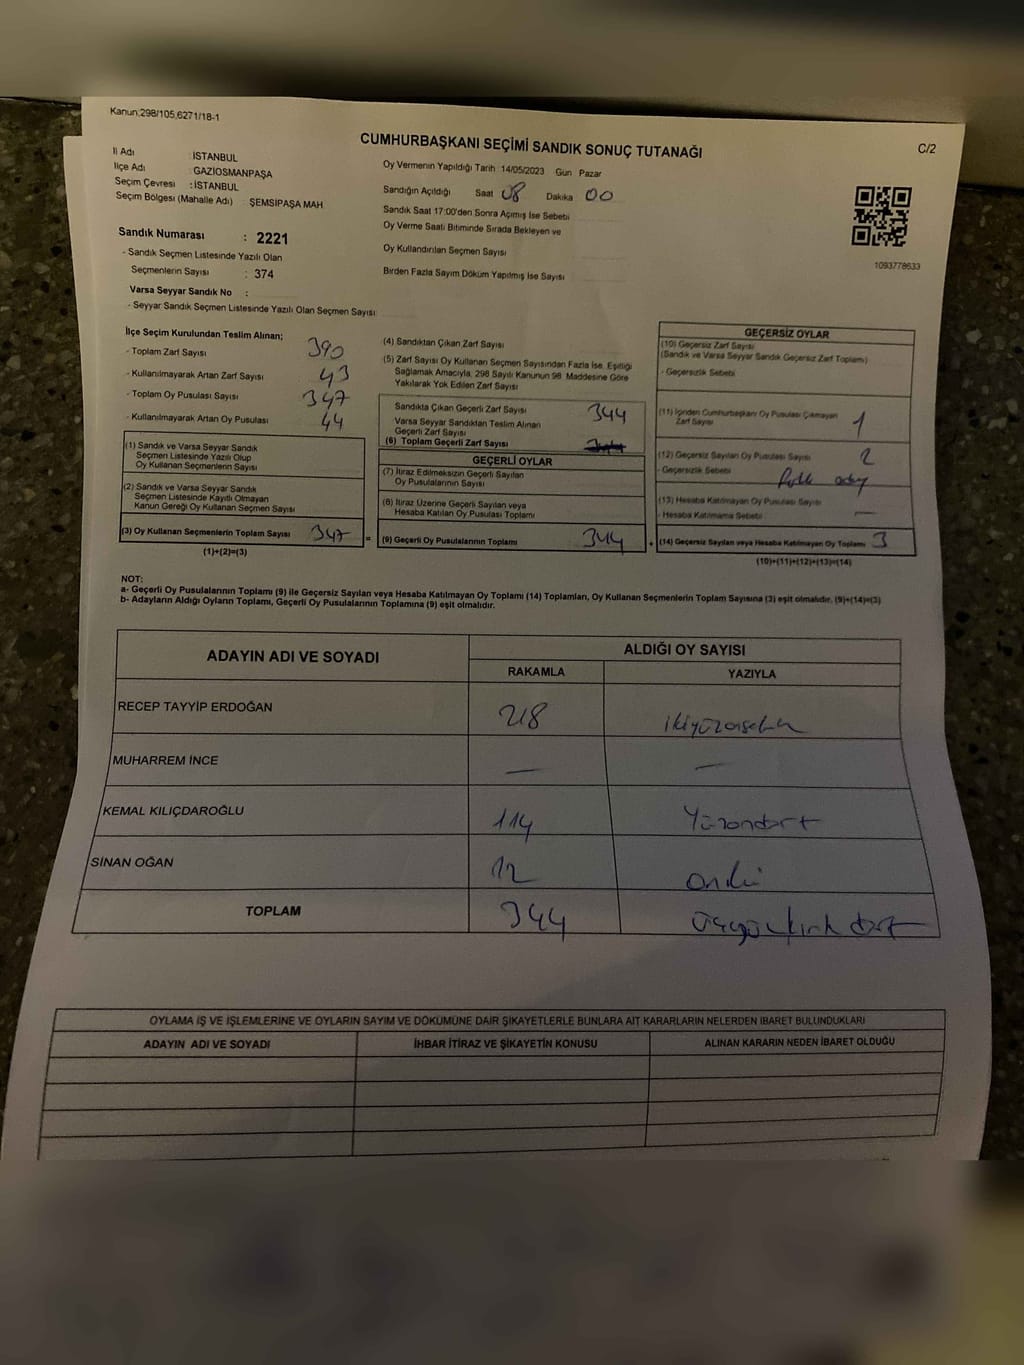 Kanun:298/105,6271/18-1
CUMHURBAŞKANI SEÇİMİ SANDIK SONUÇ TUTANAĞI
C/2
İl Adı : İSTANBUL
İlçe Adı : GAZİOSMANPAŞA
Seçim Çevresi : İSTANBUL
Seçim Bölgesi (Mahalle Adı) : ŞEMSİPAŞA MAH
Oy Vermenin Yapıldığı Tarih 14/05/2023 Gün Pazar
Sandığın Açıldığı Saat 08 Dakika 00
Sandık Saat 17:00'den Sonra Açımış İse Sebebi
Oy Verme Saati Bitiminde Sırada Bekleyen ve
Oy Kullandırılan Seçmen Sayısı
Birden Fazla Sayım Döküm Yapılmış İse Sayısı
1093778633
Sandık Numarası : 2221
- Sandık Seçmen Listesinde Yazılı Olan
Seçmenlerin Sayısı : 374
Varsa Seyyar Sandık No :
- Seyyar Sandık Seçmen Listesinde Yazılı Olan Seçmen Sayısı:
İlçe Seçim Kurulundan Teslim Alınan;
- Toplam Zarf Sayısı 390
- Kullanılmayarak Artan Zarf Sayısı 43
- Toplam Oy Pusulası Sayısı 347
- Kullanılmayarak Artan Oy Pusulası 44
(1) Sandık ve Varsa Seyyar Sandık
Seçmen Listesinde Yazılı Olup
Oy Kullanan Seçmenlerin Sayısı
(2) Sandık ve Varsa Seyyar Sandık
Seçmen Listesinde Kayıtlı Olmayan
Kanun Gereği Oy Kullanan Seçmen Sayısı
(3) Oy Kullanan Seçmenlerin Toplam Sayısı 347 =
(1)+(2)=(3)
(4) Sandıktan Çıkan Zarf Sayısı
(5) Zarf Sayısı Oy Kullanan Seçmen Sayısından Fazla İse, Eşitliği
Sağlamak Amacıyla, 298 Sayılı Kanunun 98. Maddesine Göre
Yakılarak Yok Edilen Zarf Sayısı
Sandıkta Çıkan Geçerli Zarf Sayısı 344
Varsa Seyyar Sandıktan Teslim Alınan
Geçerli Zarf Sayısı
(6) Toplam Geçerli Zarf Sayısı
GEÇERLİ OYLAR
(7) İtiraz Edilmeksizin Geçerli Sayılan
Oy Pusulalarının Sayısı
(8) İtiraz Üzerine Geçerli Sayılan veya
Hesaba Katılan Oy Pusulası Toplamı
(9) Geçerli Oy Pusulalarının Toplamı 344 +
GEÇERSİZ OYLAR
(10) Geçersiz Zarf Sayısı
(Sandık ve Varsa Seyyar Sandık Geçersiz Zarf Toplamı)
- Geçersizlik Sebebi
(11) İçinden Cumhurbaşkanı Oy Pusulası Çıkmayan
Zarf Sayısı 1
(12) Geçersiz Sayılan Oy Pusulası Sayısı 2
- Geçersizlik Sebebi
(13) Hesaba Katılmayan Oy Pusulası Sayısı
- Hesaba Katılmama Sebebi —
(14) Geçersiz Sayılan veya Hesaba Katılmayan Oy Toplamı 3
(10)+(11)+(12)+(13)=(14)
NOT:
a- Geçerli Oy Pusulalarının Toplamı (9) ile Geçersiz Sayılan veya Hesaba Katılmayan Oy Toplamı (14) Toplamları, Oy Kullanan Seçmenlerin Toplam Sayısına (3) eşit olmalıdır. (9)+(14)=(3)
b- Adayların Aldığı Oyların Toplamı, Geçerli Oy Pusulalarının Toplamına (9) eşit olmalıdır.
ADAYIN ADI VE SOYADI ALDIĞI OY SAYISI
RAKAMLA YAZIYLA
RECEP TAYYİP ERDOĞAN 218 ikiyüzonsekiz
MUHARREM İNCE — —
KEMAL KILIÇDAROĞLU 114 Yüzondört
SİNAN OĞAN 12 oniki
TOPLAM 344 üçyüzkırkdört
OYLAMA İŞ VE İŞLEMLERİNE VE OYLARIN SAYIM VE DÖKÜMÜNE DAİR ŞİKAYETLERLE BUNLARA AİT KARARLARIN NELERDEN İBARET BULUNDUKLARI
ADAYIN ADI VE SOYADI İHBAR İTİRAZ VE ŞİKAYETİN KONUSU ALINAN KARARIN NEDEN İBARET OLDUĞU